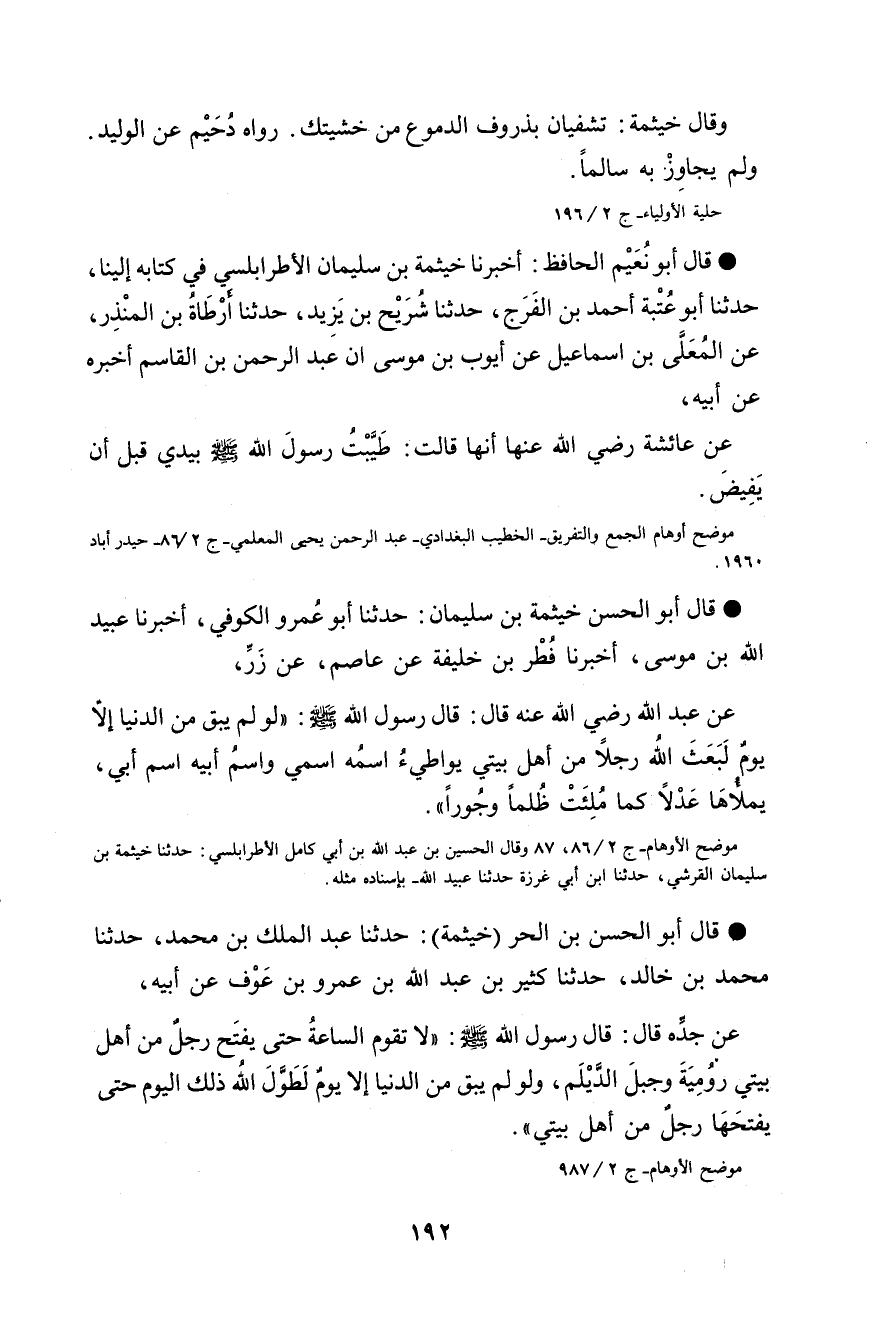 وقال خيثمة: تشفيان بذروف الدموع من خشيتك. رواه دُحَيْم عن الوليد.
ولم يجاوِزْ به سالماً.
حلية الأولياء- ج ٢/ ١٩٦
● قال أبو نُعَيْم الحافظ: أخبرنا خيثمة بن سليمان الأطرابلسي في كتابه إلينا،
حدثنا أبو عُتْبة أحمد بن الفَرَج، حدثنا شُرَيْح بن يَزِيد، حدثنا أَرْطَاةُ بن المنْذِر،
عن المُعَلَّى بن اسماعيل عن أيوب بن موسى ان عبد الرحمن بن القاسم أخبره
عن أبيه،
عن عائشة رضي الله عنها أنها قالت: طَيَّبْتُ رسولَ الله ﷺ بيدي قبل أن
يَفِيضَ.
موضح أوهام الجمع والتفريق- الخطيب البغدادي- عبد الرحمن يحيى المعلمي- ج ٢/ ٨٦- حيدر أباد
١٩٦٠.
● قال أبو الحسن خيثمة بن سليمان: حدثنا أبو عُمرو الكوفي، أخبرنا عبيد
الله بن موسى، أخبرنا فُطْر بن خليفة عن عاصم، عن زَرِّ،
عن عبد الله رضي الله عنه قال: قال رسول الله ﷺ: «لو لم يبق من الدنيا إلاّ
يومٌ لَبَعَثَ اللهُ رجلاً من أهل بيتي يواطيءُ اسمُه اسمي واسمُ أبيه اسم أبي،
يملأُهَا عَدْلاً كما مُلِئَتْ ظُلماً وجُوراً».
موضح الأوهام- ج ٢/ ٨٦، ٨٧ وقال الحسين بن عبد الله بن أبي كامل الأطرابلسي: حدثنا خيثمة بن
سليمان القرشي، حدثنا ابن أبي غرزة حدثنا عبيد الله- بإسناده مثله.
● قال أبو الحسن بن الحر (خيثمة): حدثنا عبد الملك بن محمد، حدثنا
محمد بن خالد، حدثنا كثير بن عبد الله بن عمرو بن عَوْف عن أبيه،
عن جدِّه قال: قال رسول الله ﷺ: «لا تقوم الساعةُ حتى يفتَح رجلٌ من أهل
بيتي رُومِيَةَ وجبلَ الدَّيْلَم، ولو لم يبق من الدنيا إلا يومٌ لَطَوَّلَ اللهُ ذلك اليوم حتى
يفتحَهَا رجلٌ من أهل بيتي».
موضح الأوهام- ج ٢/ ٩٨٧
١٩٢